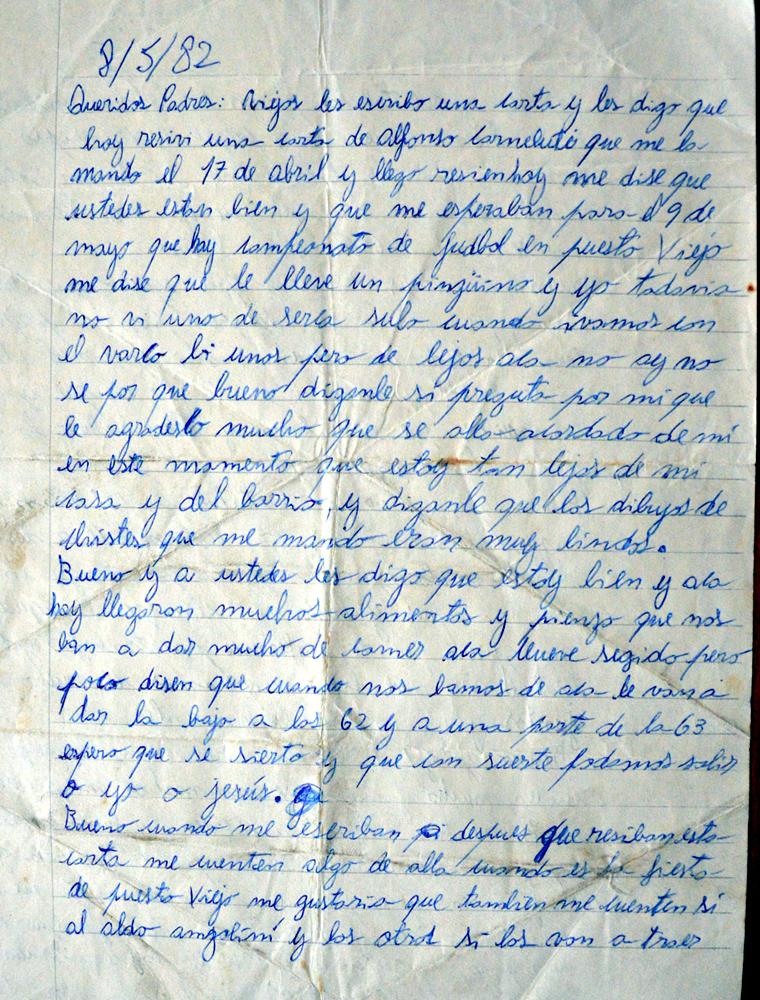 8/5/82
Queridos Padres: viejos les escribo una carta y les digo que
hoy resivi una carta de Alfonso Carnelutti que me la
mando el 17 de abril y llego resien hoy me dise que
ustedes estan bien y que me esperaban para el 9 de
mayo que hay campeonato de fudbol en puesto Viejo
me dise que le lleve un pingüino y yo todavia
no vi uno de serca solo cuando ivamos con
el varco bi unos pero de lejos aca no ay no
se por que bueno diganle si preguta por mi que
le agradesco mucho que se alla acordado de mi
en este momento que estoy tan lejos de mi
casa y del barrio, y diganle que los dibujos de
chistes que me mando eran muy lindos.
Bueno y a ustedes les digo que estoy bien y aca
hoy llegaron muchos alimentos y pienzo que nos
ban a dar mucho de comer aca llueve segido pero
poco disen que cuando nos bamos de aca le van a
dar la baja a los 62 y a una parte de la 63
espero que se sierto y que con suerte podamos salir
o yo o jesús.
Bueno cuando me escriban despues que resiban esta
carta me cuenten algo de alla cuando es la fiesta
de puesto Viejo me gustaria que tambien me cuenten si
al aldo angelini y los otros si los van a traer